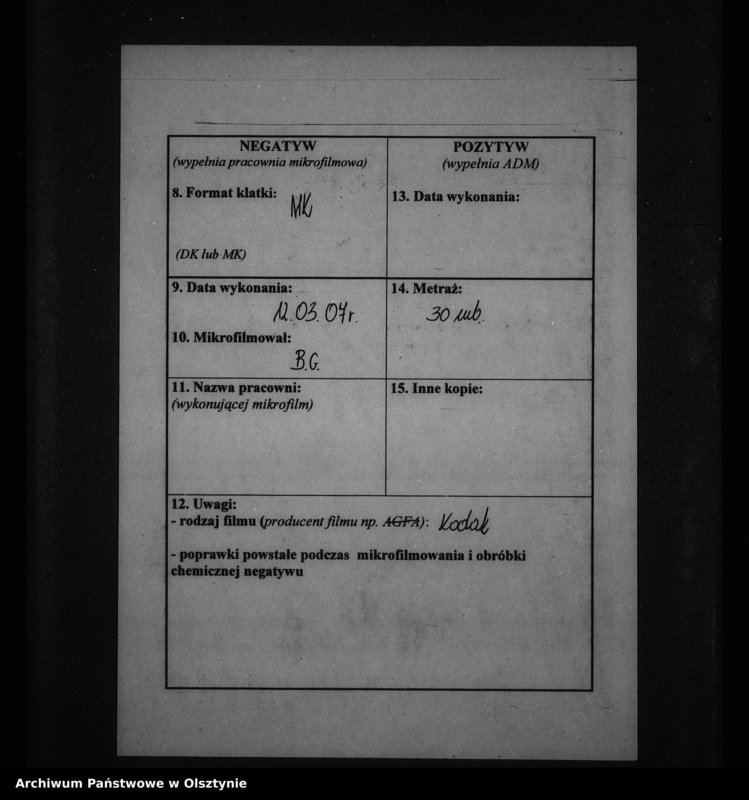 NEGATYW
(wypełnia pracownia mikrofilmowa)
8. Format klatki:
MK
(DK lub MK)
POZYTYW
(wypełnia ADM)
13. Data wykonania:
9. Data wykonania:
12.03.07r.
10. Mikrofilmował:
B.G.
14. Metraż:
30 mb.
11. Nazwa pracowni:
(wykonującej mikrofilm)
15. Inne kopie:
12. Uwagi:
- rodzaj filmu (producent filmu np. AGFA): Kodak
- poprawki powstałe podczas mikrofilmowania i obróbki
chemicznej negatywu
Archiwum Państwowe w Olsztynie